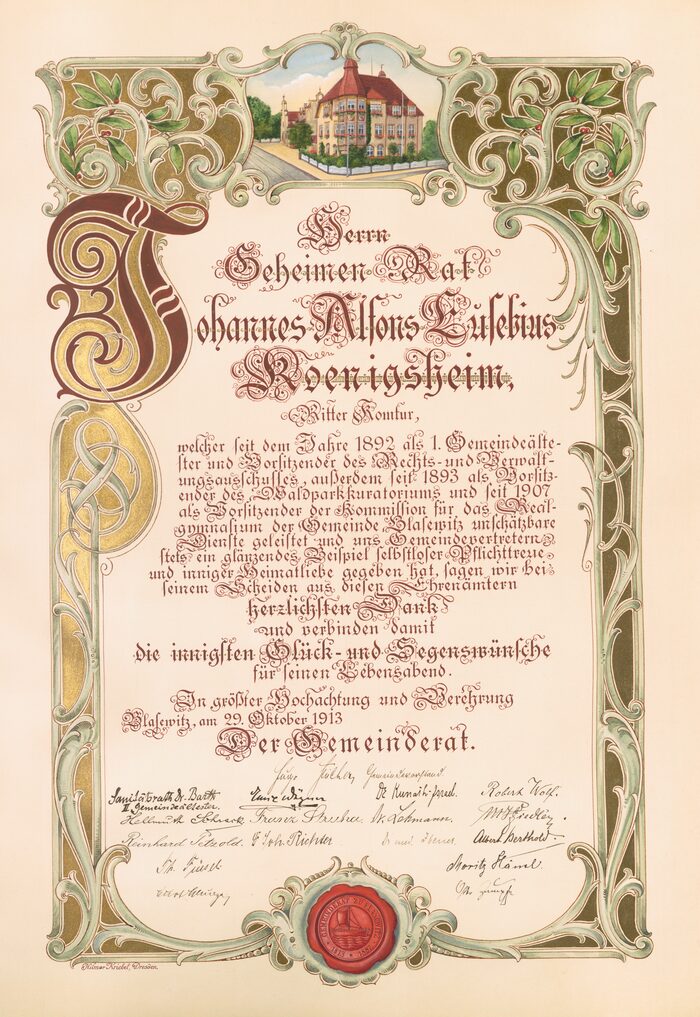 Herrn
Geheimen Rat
Johannes Alfons Eusebius
Koenigsheim,
Ritter Komtur,
welcher seit dem Jahre 1892 als 1. Gemeindeälte-
ster und Vorsitzender des Rechts- und Verwalt-
ungsausschusses, außerdem seit 1893 als Vorsitz-
ender des Waldparkkuratoriums und seit 1907
als Vorsitzender der Kommission für das Real-
gymnasium der Gemeinde Blasewitz unschätzbare
Dienste geleistet und uns Gemeindevertretern
stets ein glänzendes Beispiel selbstloser Pflichttreue
und inniger Heimatliebe gegeben hat, sagen wir bei
seinem Scheiden aus diesen Ehrenämtern
herzlichsten Dank
und verbinden damit
die innigsten Glück- und Segenswünsche
für seinen Lebensabend.
In größter Hochachtung und Verehrung
Blasewitz, am 29. Oktober 1913
Der Gemeinderat.
Gemeindevorstand
Sanitätsrath Dr. Barth
II Gemeindeältester
Robert Wolf.
Franz
Dr. Lehmann
Reinhard
Richter
Dr. med.
Albert Berthold
Moritz
Hilmar Kriebel, Dresden.